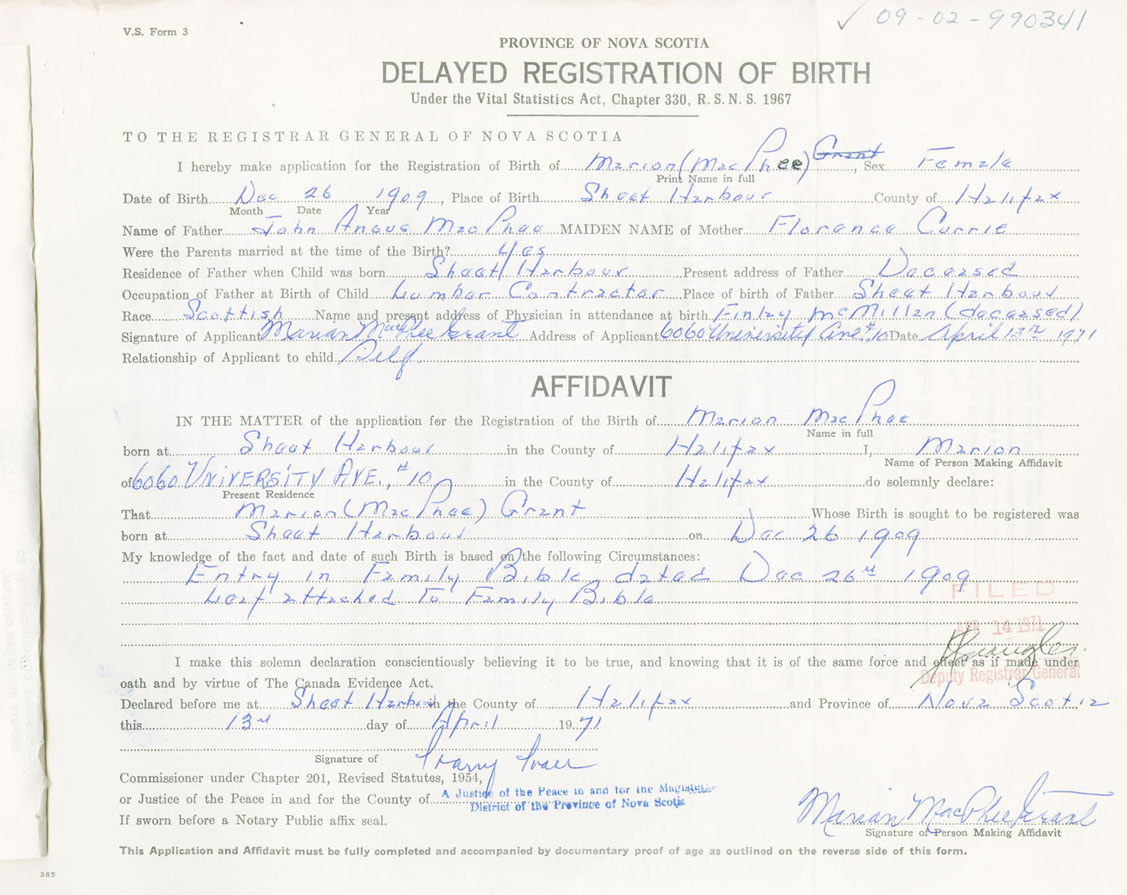 V.S. Form 3
✓ 09-02-990341
PROVINCE OF NOVA SCOTIA
DELAYED REGISTRATION OF BIRTH
Under the Vital Statistics Act, Chapter 330, R.S.N.S. 1967
TO THE REGISTRAR GENERAL OF NOVA SCOTIA
I hereby make application for the Registration of Birth of Marion (MacPhee) Grant, Sex Female
Print Name in full
Date of Birth Dec 26 1909, Place of Birth Sheet Harbour County of Halifax
Month Date Year
Name of Father John Angus MacPhee MAIDEN NAME of Mother Florence Currie
Were the Parents married at the time of the Birth? Yes
Residence of Father when Child was born Sheet Harbour Present address of Father Deceased
Occupation of Father at Birth of Child Lumber Contractor Place of birth of Father Sheet Harbour
Race Scottish Name and present address of Physician in attendance at birth Finlay McMillan (deceased)
Signature of Applicant Marian MacPhee Grant Address of Applicant 6060 University Ave #10 Date April 1971
Relationship of Applicant to child Self
AFFIDAVIT
IN THE MATTER of the application for the Registration of the Birth of Marion MacPhee
Name in full
born at Sheet Harbour in the County of Halifax I, Marion
Name of Person Making Affidavit
of 6060 UNIVERSITY AVE., #10 in the County of Halifax do solemnly declare:
Present Residence
That Marion (MacPhee) Grant Whose Birth is sought to be registered was
born at Sheet Harbour on Dec 26 1909
My knowledge of the fact and date of such Birth is based on the following Circumstances:
Entry in Family Bible, dated Dec 26th 1909
Leaf attached To Family Bible
FILED
APR 14 1971
I make this solemn declaration conscientiously believing it to be true, and knowing that it is of the same force and effect as if made under
Deputy Registrar General
oath and by virtue of The Canada Evidence Act.
Declared before me at Sheet Harbour in the County of Halifax and Province of Nova Scotia
this 13th day of April 1971
Signature of Harry
Commissioner under Chapter 201, Revised Statutes, 1954,
or Justice of the Peace in and for the County of A Justice of the Peace in and for the Magisterial
District of the Province of Nova Scotia
If sworn before a Notary Public affix seal.
Marian MacPhee Grant
Signature of Person Making Affidavit
This Application and Affidavit must be fully completed and accompanied by documentary proof of age as outlined on the reverse side of this form.
385